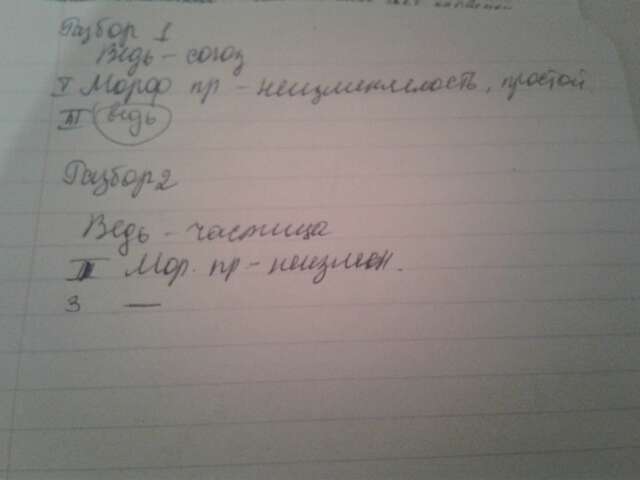 Разбор 1
Ведь - союз
II Морф пр - неизменяемость, простой
III ведь
Разбор 2
Ведь - частица
II Мор. пр - неизмен.
3 —